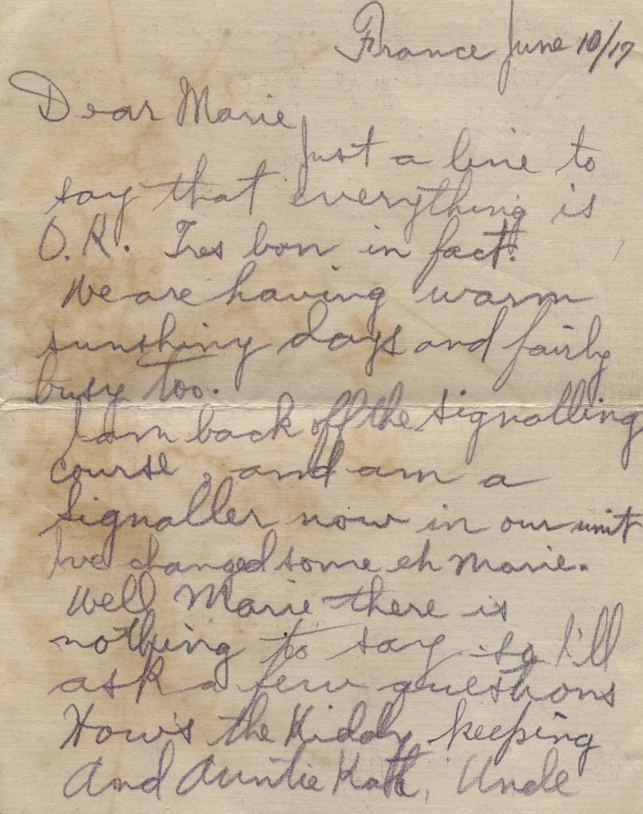 France June 10/17
Dear Marie
Just a line to
say that everything is
O.K. Tres bon in fact!
We are having warm
sunshiny days and fairly
busy too.
I am back off the signalling
course, and am a
signaller now in our unit
I've changed some eh Marie.
Well Marie there is
nothing to say so I'll
ask a few questions
How's the Kiddy keeping
And Auntie Kate, Uncle